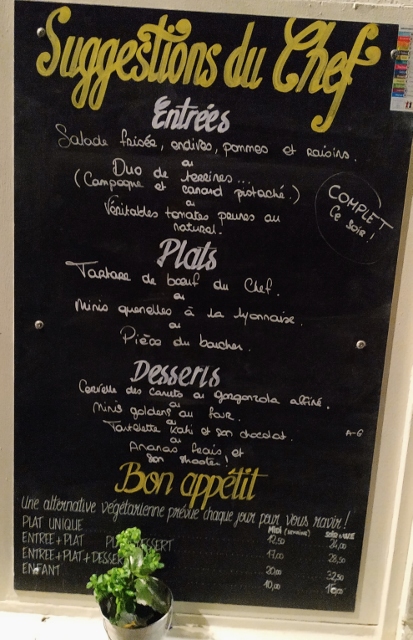 Suggestions du Chef
Entrées
Salade frisée, endives, pommes et raisins.
ou
Duo de terrines...
(Campagne et canard pistaché.)
ou
Véritables tomates peures au
naturel.
COMPLET
Ce soir!
Plats
Tartare de bœuf du Chef.
ou
Minis quenelles à la lyonnaise.
ou
Pièce du boucher.
Desserts
Cervelle des canuts ou gorgonzola affiné.
ou
Minis goldens au four.
ou
Tartelette kaki et son chocolat.
ou
Ananas frais, et
son shooter.
Bon appétit
Une alternative végétarienne prévue chaque jour pour vous ravir!
MIDI (semaine)
PLAT UNIQUE 12,50 24,00
ENTREE+PLAT PLAT+DESSERT 17,00 28,50
ENTREE+PLAT+DESSERT 20,00 32,50
ENFANT 10,00